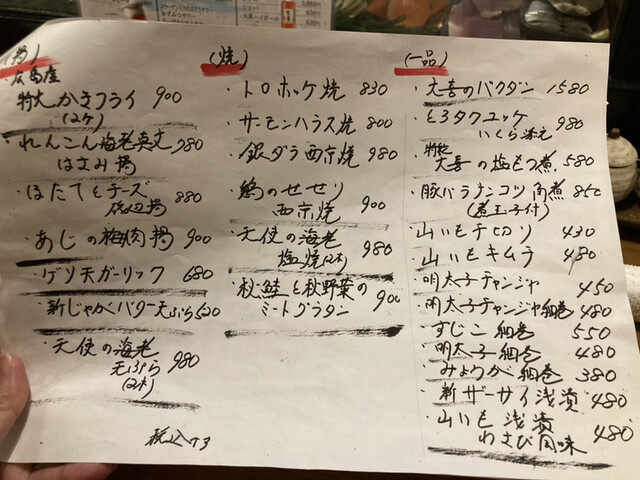 (揚)
広島産
特大かきフライ 900
(2ケ)
れんこん海老真丈 980
はさみ揚
ほたてとチーズ 880
磯辺揚
あじの梅肉揚 900
ゲソ天ガーリック 680
新じゃがバター天ぷら 580
天使の海老
天ぷら 980
(2本)
税込です
(焼)
・トロホッケ焼 830
・サーモンハラス焼 800
・銀ダラ西京焼 980
・鶏のせせり
西京焼 900
・天使の海老
塩焼(2本) 980
・秋鮭と秋野菜の
ミートグラタン 900
(一品)
・大喜のバクダン 1580
・とろタクユッケ
いくら添え 980
・特純
大喜の塩もつ煮 580
・豚バラナンコツ角煮 850
(煮玉子付)
・山いも千切り 430
・山いもキムチ 480
・明太子チャンジャ 450
・明太子チャンジャ細巻 480
・すじこ細巻 550
・明太子細巻 480
・みょうが細巻 380
・新ザーサイ浅漬 480
・山いも浅漬
わさび風味 480